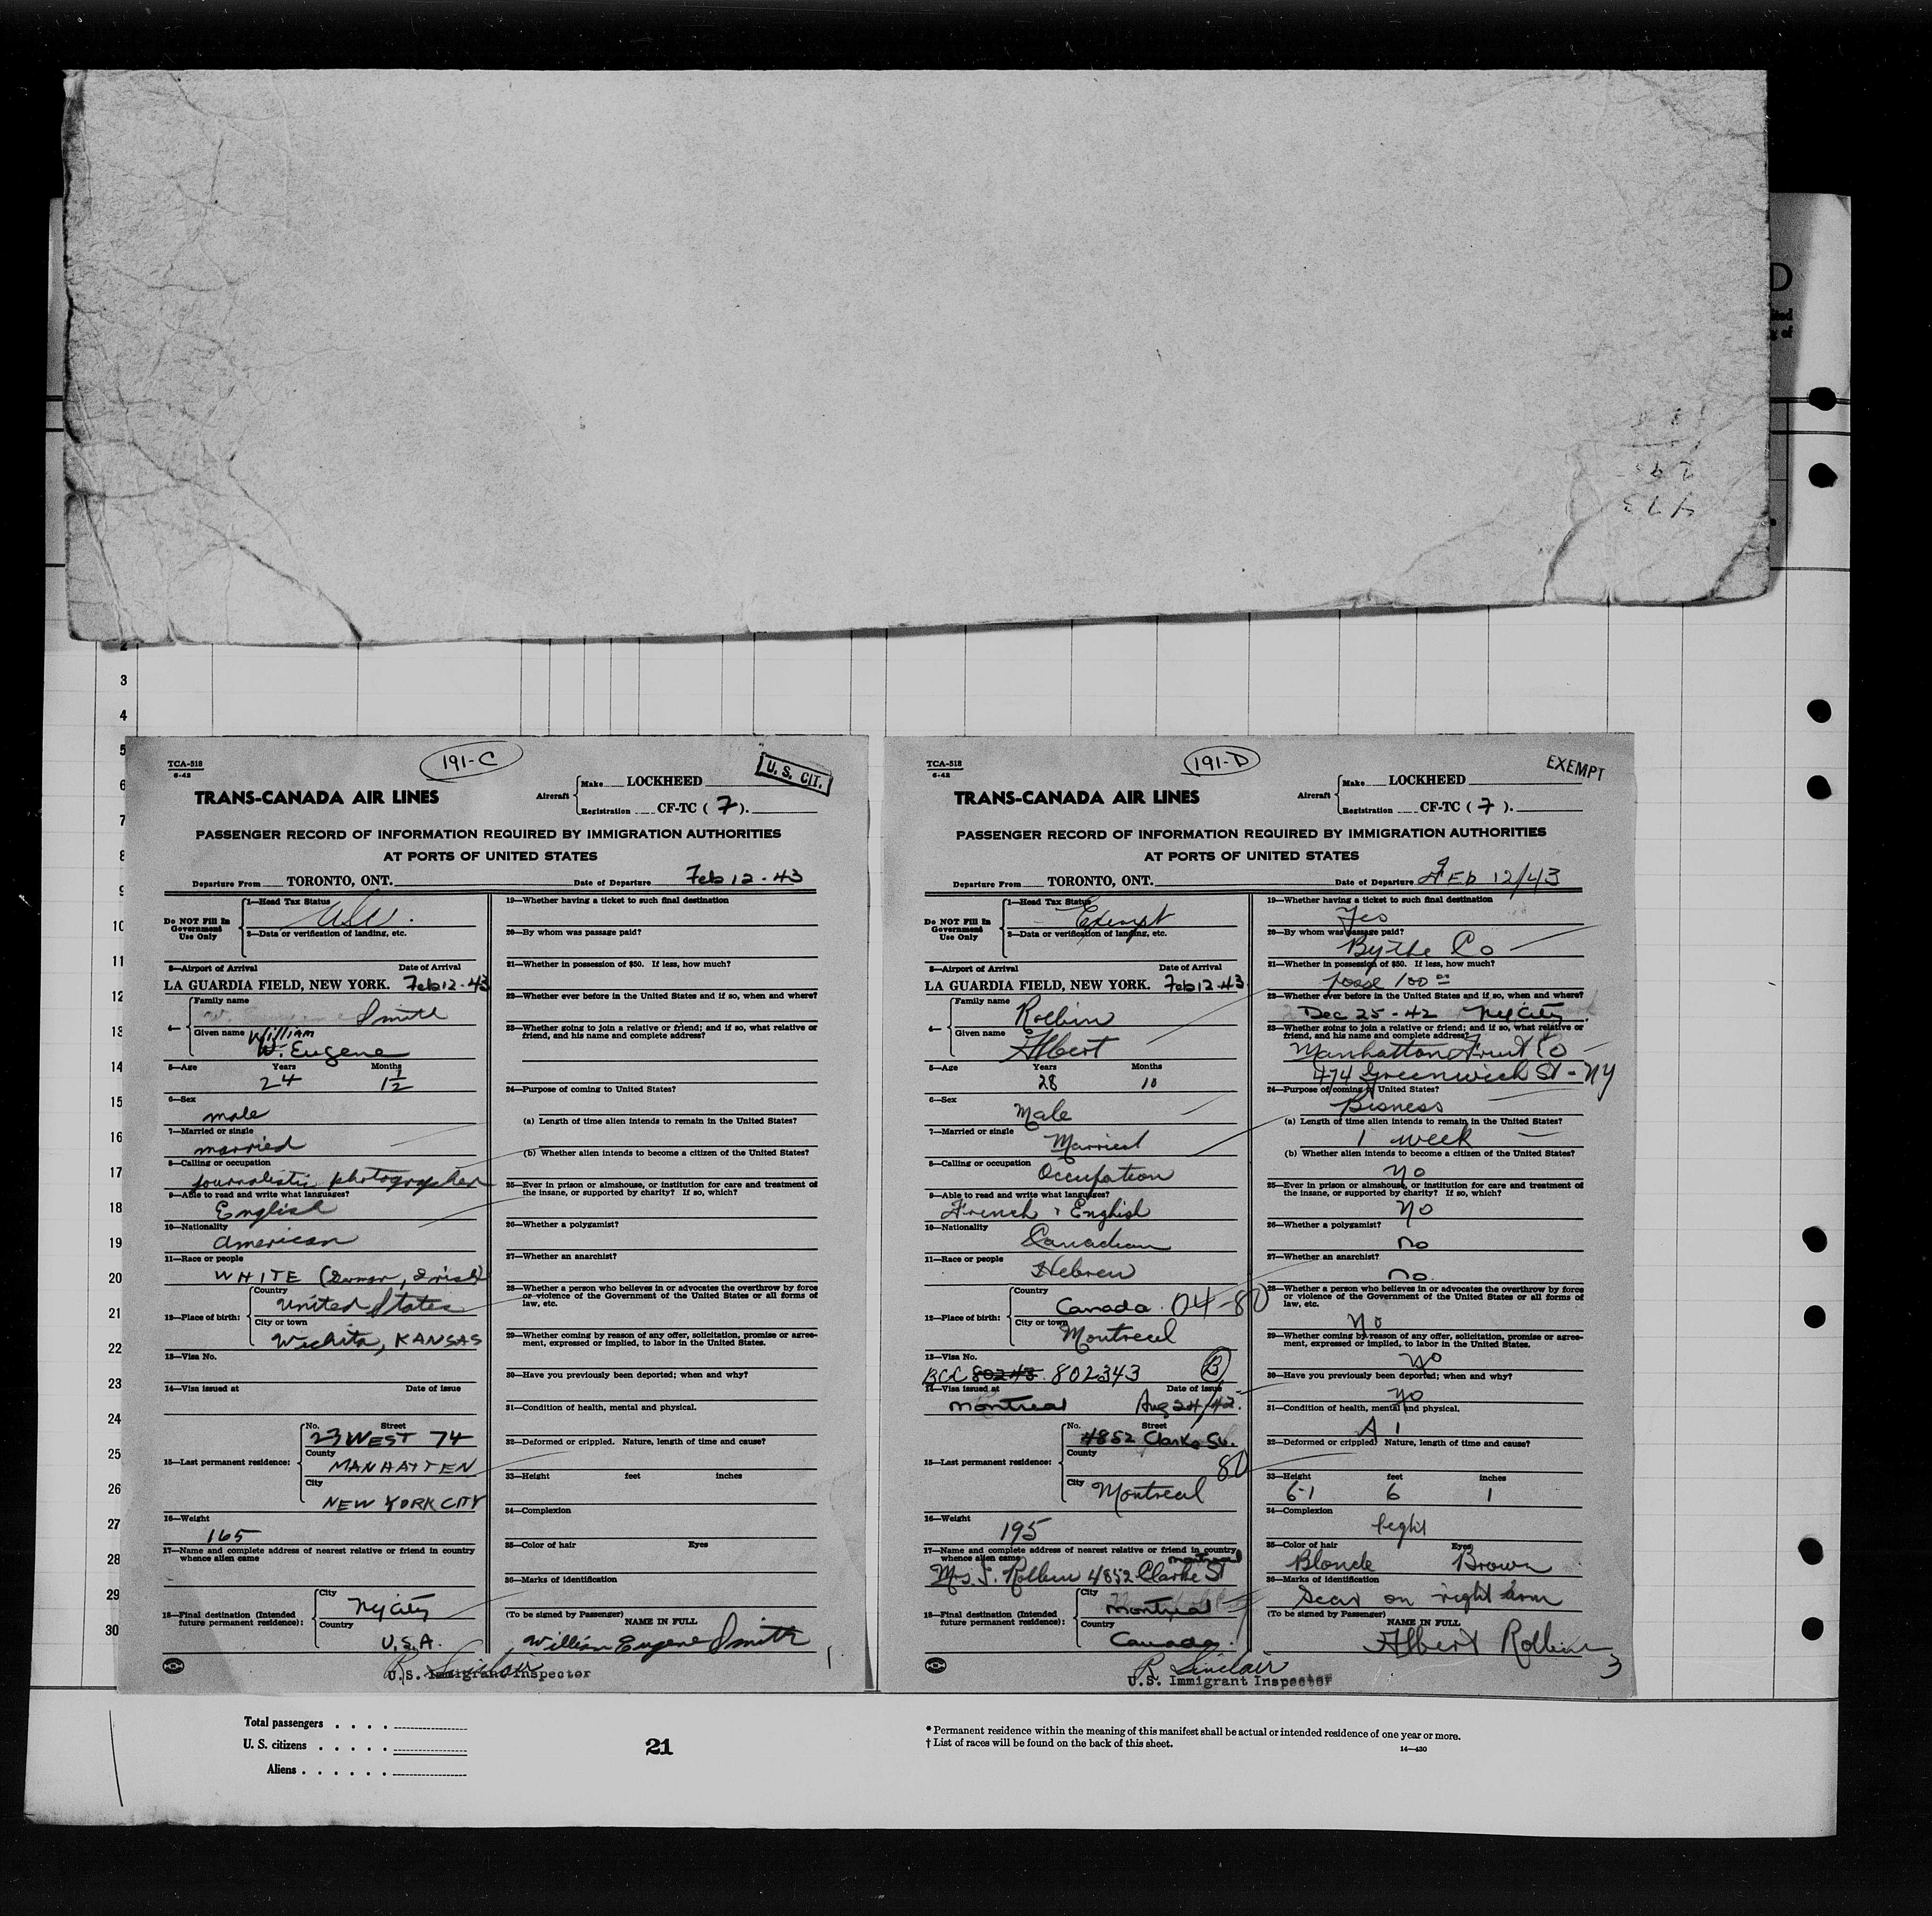 D
2
3
4
5
6
7
8
9
10
11
12
13
14
15
16
17
18
19
20
21
22
23
24
25
26
27
28
29
30
TCA-518
6-42
191-C
U. S. CIT.
TRANS-CANADA AIR LINES
Aircraft
Make LOCKHEED
Registration CF-TC ( 7 ).
PASSENGER RECORD OF INFORMATION REQUIRED BY IMMIGRATION AUTHORITIES
AT PORTS OF UNITED STATES
Departure From TORONTO, ONT. Date of Departure Feb 12 - 43
Do NOT Fill In
Government
Use Only
1—Head Tax Status
USC.
2—Data or verification of landing, etc.
3—Airport of Arrival Date of Arrival
LA GUARDIA FIELD, NEW YORK. Feb 12-43
4—
Family name
Smith
Given name William
W. Eugene
5—Age Years Months
24 1½
6—Sex
male
7—Married or single
married
8—Calling or occupation
journalistic photographer
9—Able to read and write what languages?
English
10—Nationality
American
11—Race or people
WHITE (German, Irish)
12—Place of birth:
Country
United States
City or town
Wichita, KANSAS
13—Visa No.
14—Visa issued at Date of issue
15—Last permanent residence:
No. Street
23 WEST 74
County
MANHATTEN
City
NEW YORK CITY
16—Weight
165
17—Name and complete address of nearest relative or friend in country
whence alien came
18—Final destination (Intended
future permanent residence):
City
NY City
Country
U.S.A.
19—Whether having a ticket to such final destination
20—By whom was passage paid?
21—Whether in possession of $50. If less, how much?
22—Whether ever before in the United States and if so, when and where?
23—Whether going to join a relative or friend; and if so, what relative or
friend, and his name and complete address?
24—Purpose of coming to United States?
(a) Length of time alien intends to remain in the United States?
(b) Whether alien intends to become a citizen of the United States?
25—Ever in prison or almshouse, or institution for care and treatment of
the insane, or supported by charity? If so, which?
26—Whether a polygamist?
27—Whether an anarchist?
28—Whether a person who believes in or advocates the overthrow by force
or violence of the Government of the United States or all forms of
law, etc.
29—Whether coming by reason of any offer, solicitation, promise or agree-
ment, expressed or implied, to labor in the United States.
30—Have you previously been deported; when and why?
31—Condition of health, mental and physical.
32—Deformed or crippled. Nature, length of time and cause?
33—Height feet inches
34—Complexion
35—Color of hair Eyes
36—Marks of identification
(To be signed by Passenger) NAME IN FULL
William Eugene Smith
1
R. Sinclair
U.S. Immigrant Inspector
TCA-518
6-42
191-D
EXEMPT
TRANS-CANADA AIR LINES
Aircraft
Make LOCKHEED
Registration CF-TC ( 7 ).
PASSENGER RECORD OF INFORMATION REQUIRED BY IMMIGRATION AUTHORITIES
AT PORTS OF UNITED STATES
Departure From TORONTO, ONT. Date of Departure FEB 12/43
Do NOT Fill In
Government
Use Only
1—Head Tax Status
Exempt
2—Data or verification of landing, etc.
3—Airport of Arrival Date of Arrival
LA GUARDIA FIELD, NEW YORK. Feb 12-43
4—
Family name
Rolbin
Given name
Albert
5—Age Years Months
28 10
6—Sex
Male
7—Married or single
Married
8—Calling or occupation
Occupation
9—Able to read and write what languages?
French & English
10—Nationality
Canadian
11—Race or people
Hebrew
12—Place of birth:
Country
Canada 04-80
City or town
Montreal
13—Visa No.
BCC 80243 802343 B
14—Visa issued at Date of issue
Montreal Aug 24/42
15—Last permanent residence:
No. Street
4852 Clarke St.
County
80
City
Montreal
16—Weight
195
17—Name and complete address of nearest relative or friend in country
whence alien came Montreal
Mrs J. Rolbin 4852 Clarke St
18—Final destination (Intended
future permanent residence):
City
Montreal
Country
Canada
19—Whether having a ticket to such final destination
Yes
20—By whom was passage paid?
By the Co
21—Whether in possession of $50. If less, how much?
posse 100 00
22—Whether ever before in the United States and if so, when and where?
Dec 25-42 NY City
23—Whether going to join a relative or friend; and if so, what relative or
friend, and his name and complete address?
Manhatton Fruit Co
474 Greenwich St - NY
24—Purpose of coming to United States?
Bisness
(a) Length of time alien intends to remain in the United States?
1 week
(b) Whether alien intends to become a citizen of the United States?
No
25—Ever in prison or almshouse, or institution for care and treatment of
the insane, or supported by charity? If so, which?
No
26—Whether a polygamist?
no
27—Whether an anarchist?
no
28—Whether a person who believes in or advocates the overthrow by force
or violence of the Government of the United States or all forms of
law, etc.
No
29—Whether coming by reason of any offer, solicitation, promise or agree-
ment, expressed or implied, to labor in the United States.
No
30—Have you previously been deported; when and why?
No
31—Condition of health, mental and physical.
A 1
32—Deformed or crippled. Nature, length of time and cause?
33—Height feet inches
6-1 6 1
34—Complexion
light
35—Color of hair Eyes
Blonde Brown
36—Marks of identification
Scar on right arm
(To be signed by Passenger) NAME IN FULL
Albert Rolbin
3
R. Sinclair
U.S. Immigrant Inspector
Total passengers . . . .
U. S. citizens . . . . .
Aliens . . . . . .
21
* Permanent residence within the meaning of this manifest shall be actual or intended residence of one year or more.
† List of races will be found on the back of this sheet.
14—430